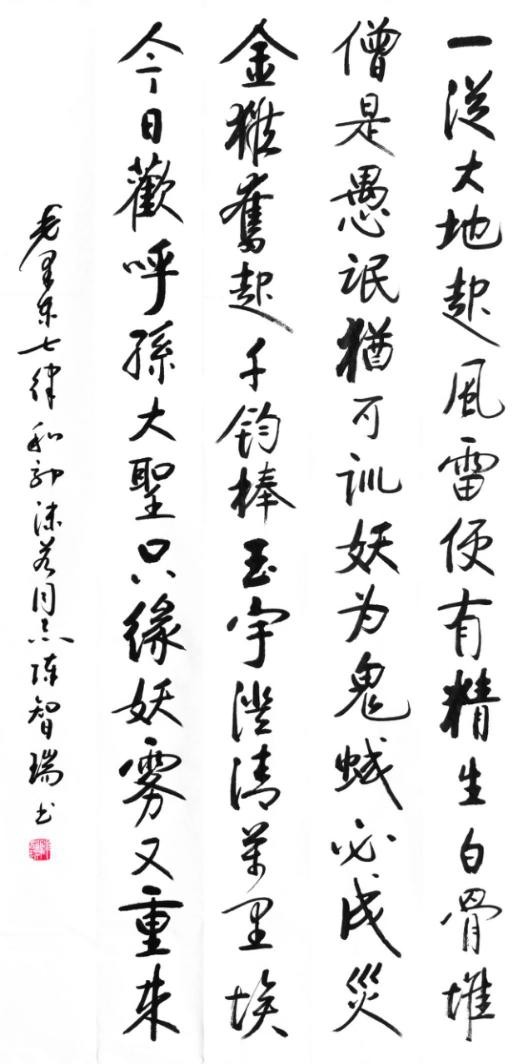 一從大地起風雷便有精生白骨堆
僧是愚氓猶可訓妖为鬼蜮必成災
金猴奮起千鈞棒玉宇澄清萬里埃
今日歡呼孫大聖只緣妖雾又重来
毛澤東七律和郭沫若同志陳智瑞书